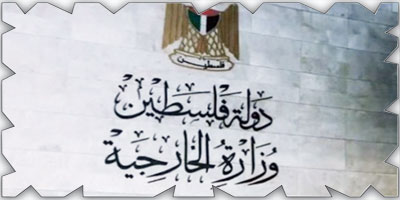 فلسطين
دولة فلسطين
وزارة الخارجية